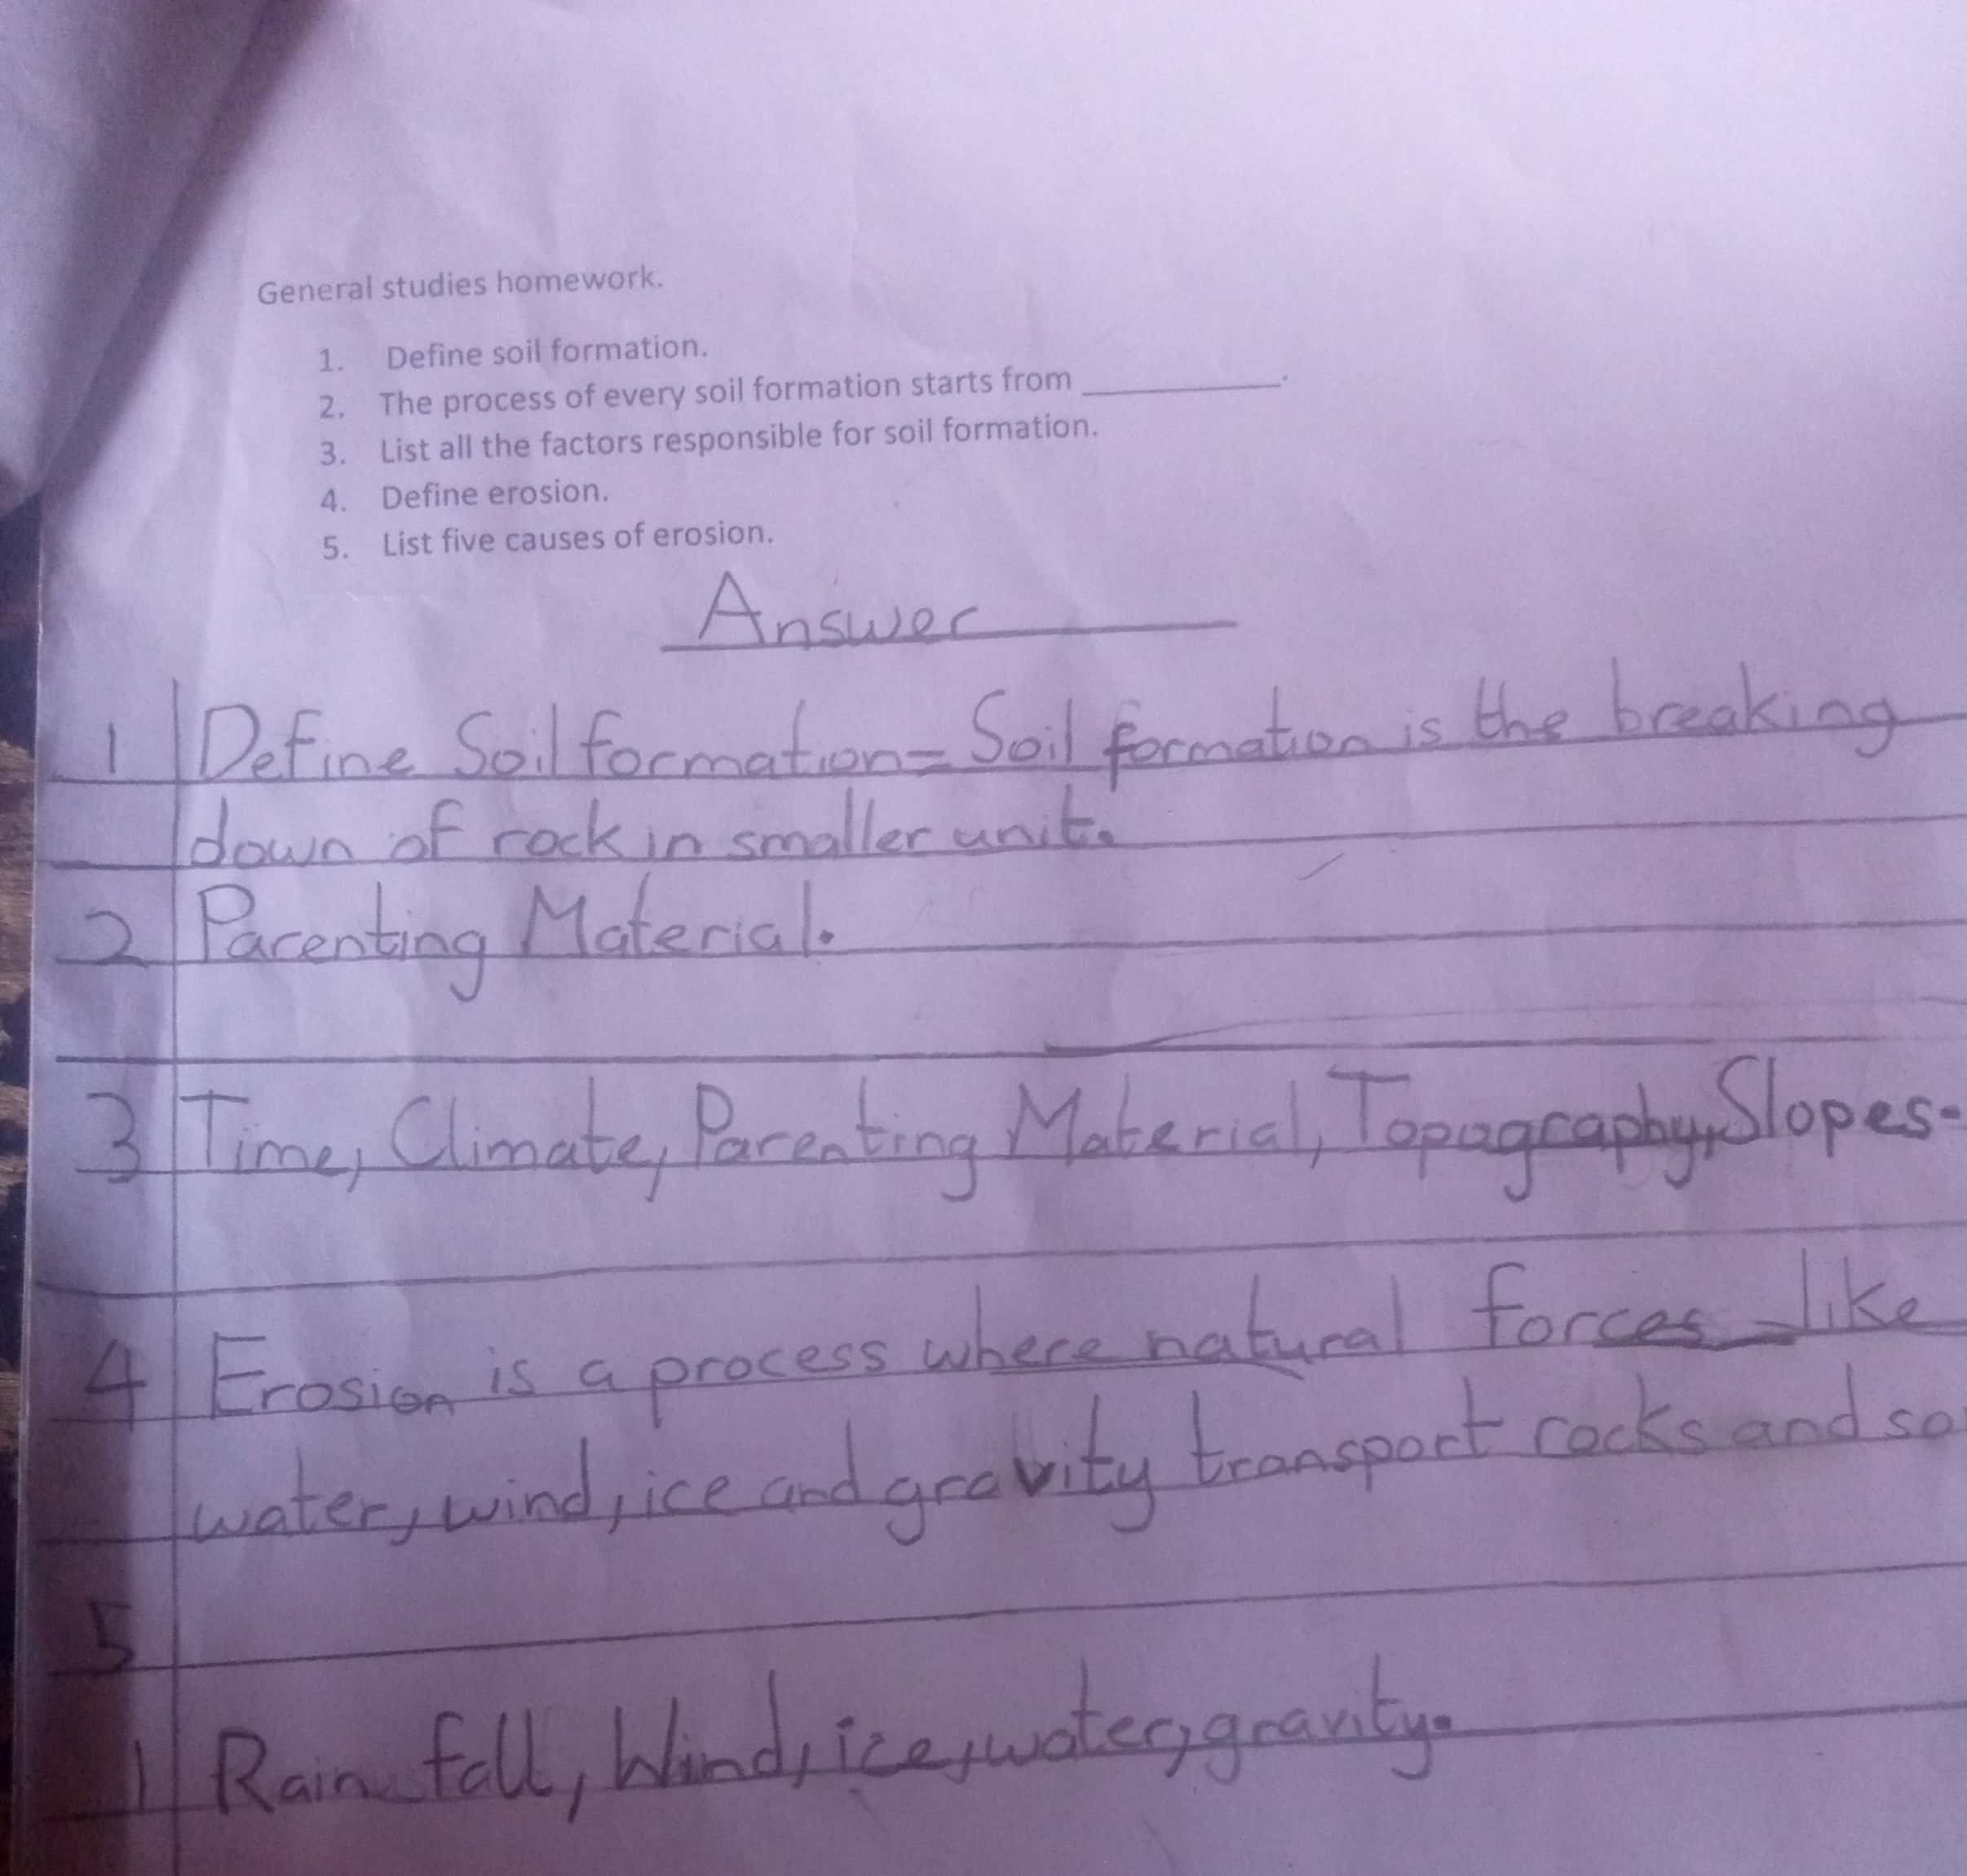 General studies homework.
1. Define soil formation.
2. The process of every soil formation starts from __________.
3. List all the factors responsible for soil formation.
4. Define erosion.
5. List five causes of erosion.
Answer
1 Define Soil formation = Soil formation is the breaking
down of rock in smaller unit.
2 Parenting Material.
3 Time, Climate, Parenting Material, Topography, Slopes.
4 Erosion is a process where natural forces like
water, wind, ice and gravity transport rocks and so
5
1 Rain fall, Wind, ice, water, gravity.